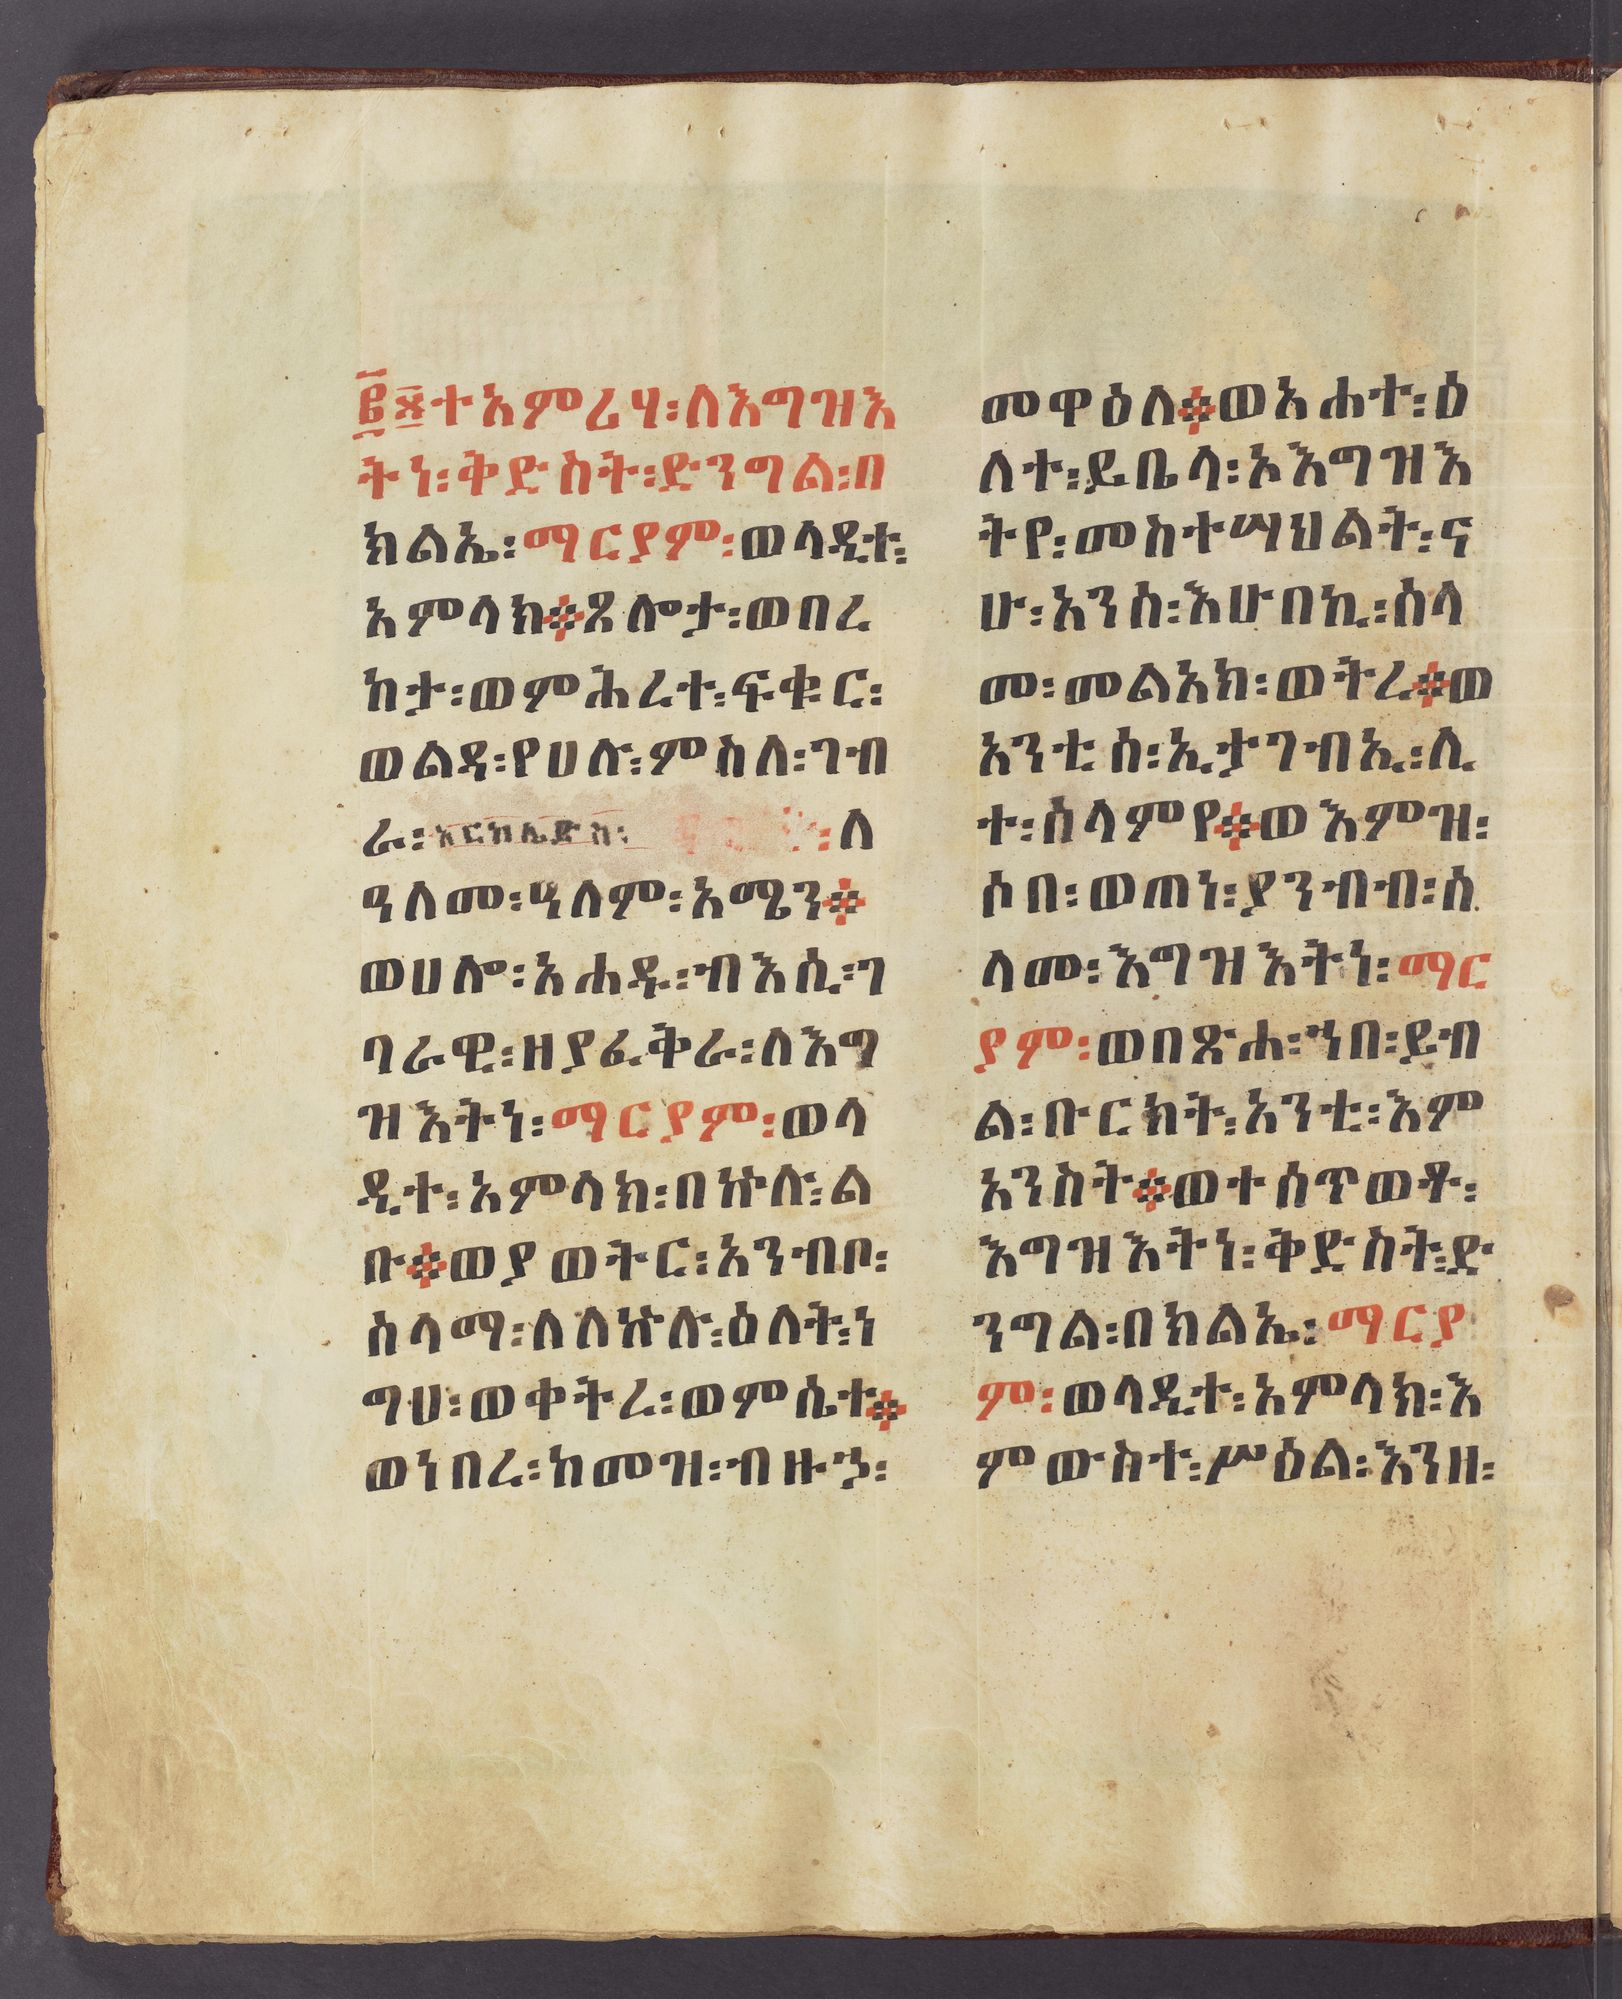 ፪፬ተአምሪሃ፡ለእግዝእ
ትነ፡ቅድስት፡ድንግል፡በ
ክልኤ፡ማርያም፡ወላዲተ፡
አምላክ፨ጸሎታ፡ወበረ
ከታ፡ወምሕረተ፡ፍቁር፡
ወልዳ፡የሀሉ፡ምስለ፡ገብ
ራ፡አርከሌድስ፡ ፡ለ
ዓለመ፡ዓለም፡አሜን፨
ወሀሎ፡አሐዱ፡ብእሲ፡ገ
ባራዊ፡ዘያፈቅራ፡ለእግ
ዝእትነ፡ማርያም፡ወላ
ዲተ፡አምላክ፡በኵሉ፡ል
ቡ፨ወያወትር፡አንብቦ፡
ስላማ፡ለለኵሉ፡ዕለት፡ነ
ግሀ፡ወቀትረ፡ወምሴተ፨
ወነበረ፡ከመዝ፡ብዙኃ፡
መዋዕለ፨ወአሐተ፡ዕ
ለተ፡ይቤላ፡ኦእግዝእ
ትየ፡መስተሣህልት፡ና
ሁ፡አንሰ፡እሁበኪ፡ሰላ
መ፡መልአክ፡ወትረ፨ወ
አንቲሰ፡ኢታገብኢ፡ሊ
ተ፡ሰላምየ፨ወእምዝ፡
ሶበ፡ወጠነ፡ያንብብ፡ሰ
ላመ፡እግዝእትነ፡ማር
ያም፡ወበጽሐ፡ኀበ፡ይብ
ል፡ቡርክት፡አንቲ፡እም
አንስት፨ወተሰጥወቶ፡
እግዝእትነ፡ቅድስት፡ድ
ንግል፡በክልኤ፡ማርያ
ም፡ወላዲተ፡አምላክ፡እ
ምውስተ፡ሥዕል፡እንዘ፡